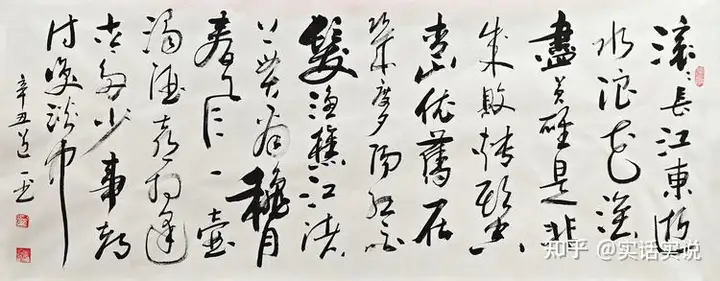 滚滚長江東逝
水浪花淘
盡英雄是非
成敗轉頭空
青山依舊在
幾度夕陽紅白
髮漁樵江渚
上慣看穐月
春風一壺
濁酒喜相逢
古今多少事都
付笑談中
辛丑道一
知乎 @实话实说